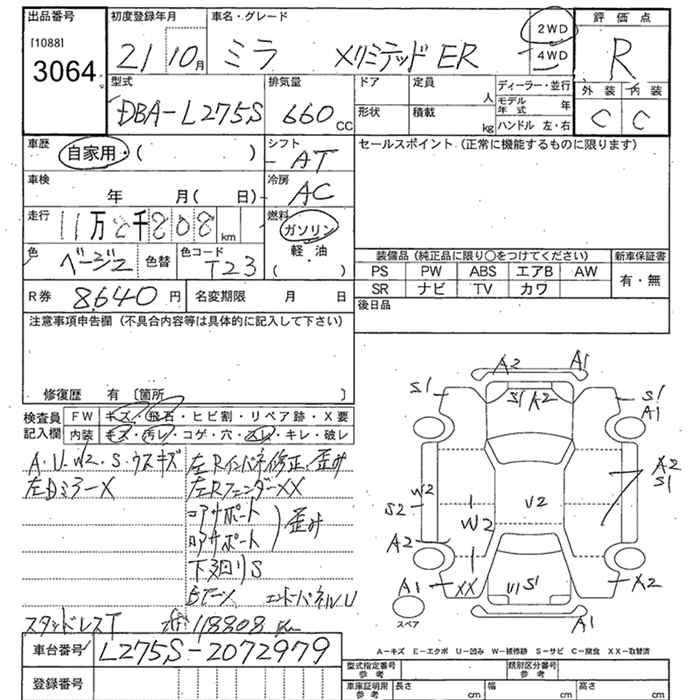 出品番号 初度登録年月 車名・グレード 2WD 4WD 評価点
[1088]
3064 21 10月 ミラ Xリミテッド ER R
型式 排気量 ドア 定員 人 ディーラー・並行 外装 内装
DBA-L275S 660cc 形状 積載 kg モデル年式 年 C C
ハンドル 左・右
車歴 自家用・( ) シフト AT セールスポイント (正常に機能するものに限ります)
車検 年 月( 日) 冷房 AC
走行 11万 千808km 燃料 ガソリン 軽・油 ( )
色 ベージュ 色替 色コード T23 装備品 (純正品に限り○をつけてください) 新車保証書
PS PW ABS エアB AW 有・無
SR ナビ TV カワ
R券 8,640円 名変期限 月 日 後日品
注意事項申告欄 (不具合内容等は具体的に記入して下さい)
修復歴 有 〔箇所 〕
検査員 FW キズ・飛石・ヒビ割・リペア跡・X要
記入欄 内装 キズ・汚レ・コゲ・穴・スレ・キレ・破レ
A・U・W2・S・ウスキズ 左Rインパネ修正、歪み
左DミラーX 左RフェンダーXX
コアサポート
コアサポート 歪み
下廻りS
エンドパネルU
スタッドレスT 118808km
車台番号 L275S-2072979
登録番号
A2 A1
S1 S1 A2 S1
A1
W2 A2
S1
S2 U2
W2
A2
A1 XX U1 S1 A2
スペア A1
A-キズ E-エクボ U-凹み W-補修跡 S-サビ C-腐食 XX-取替済
型式指定番号 参考 類別区分番号 参考
車庫証明用 参考 長さ cm 幅 cm 高さ cm